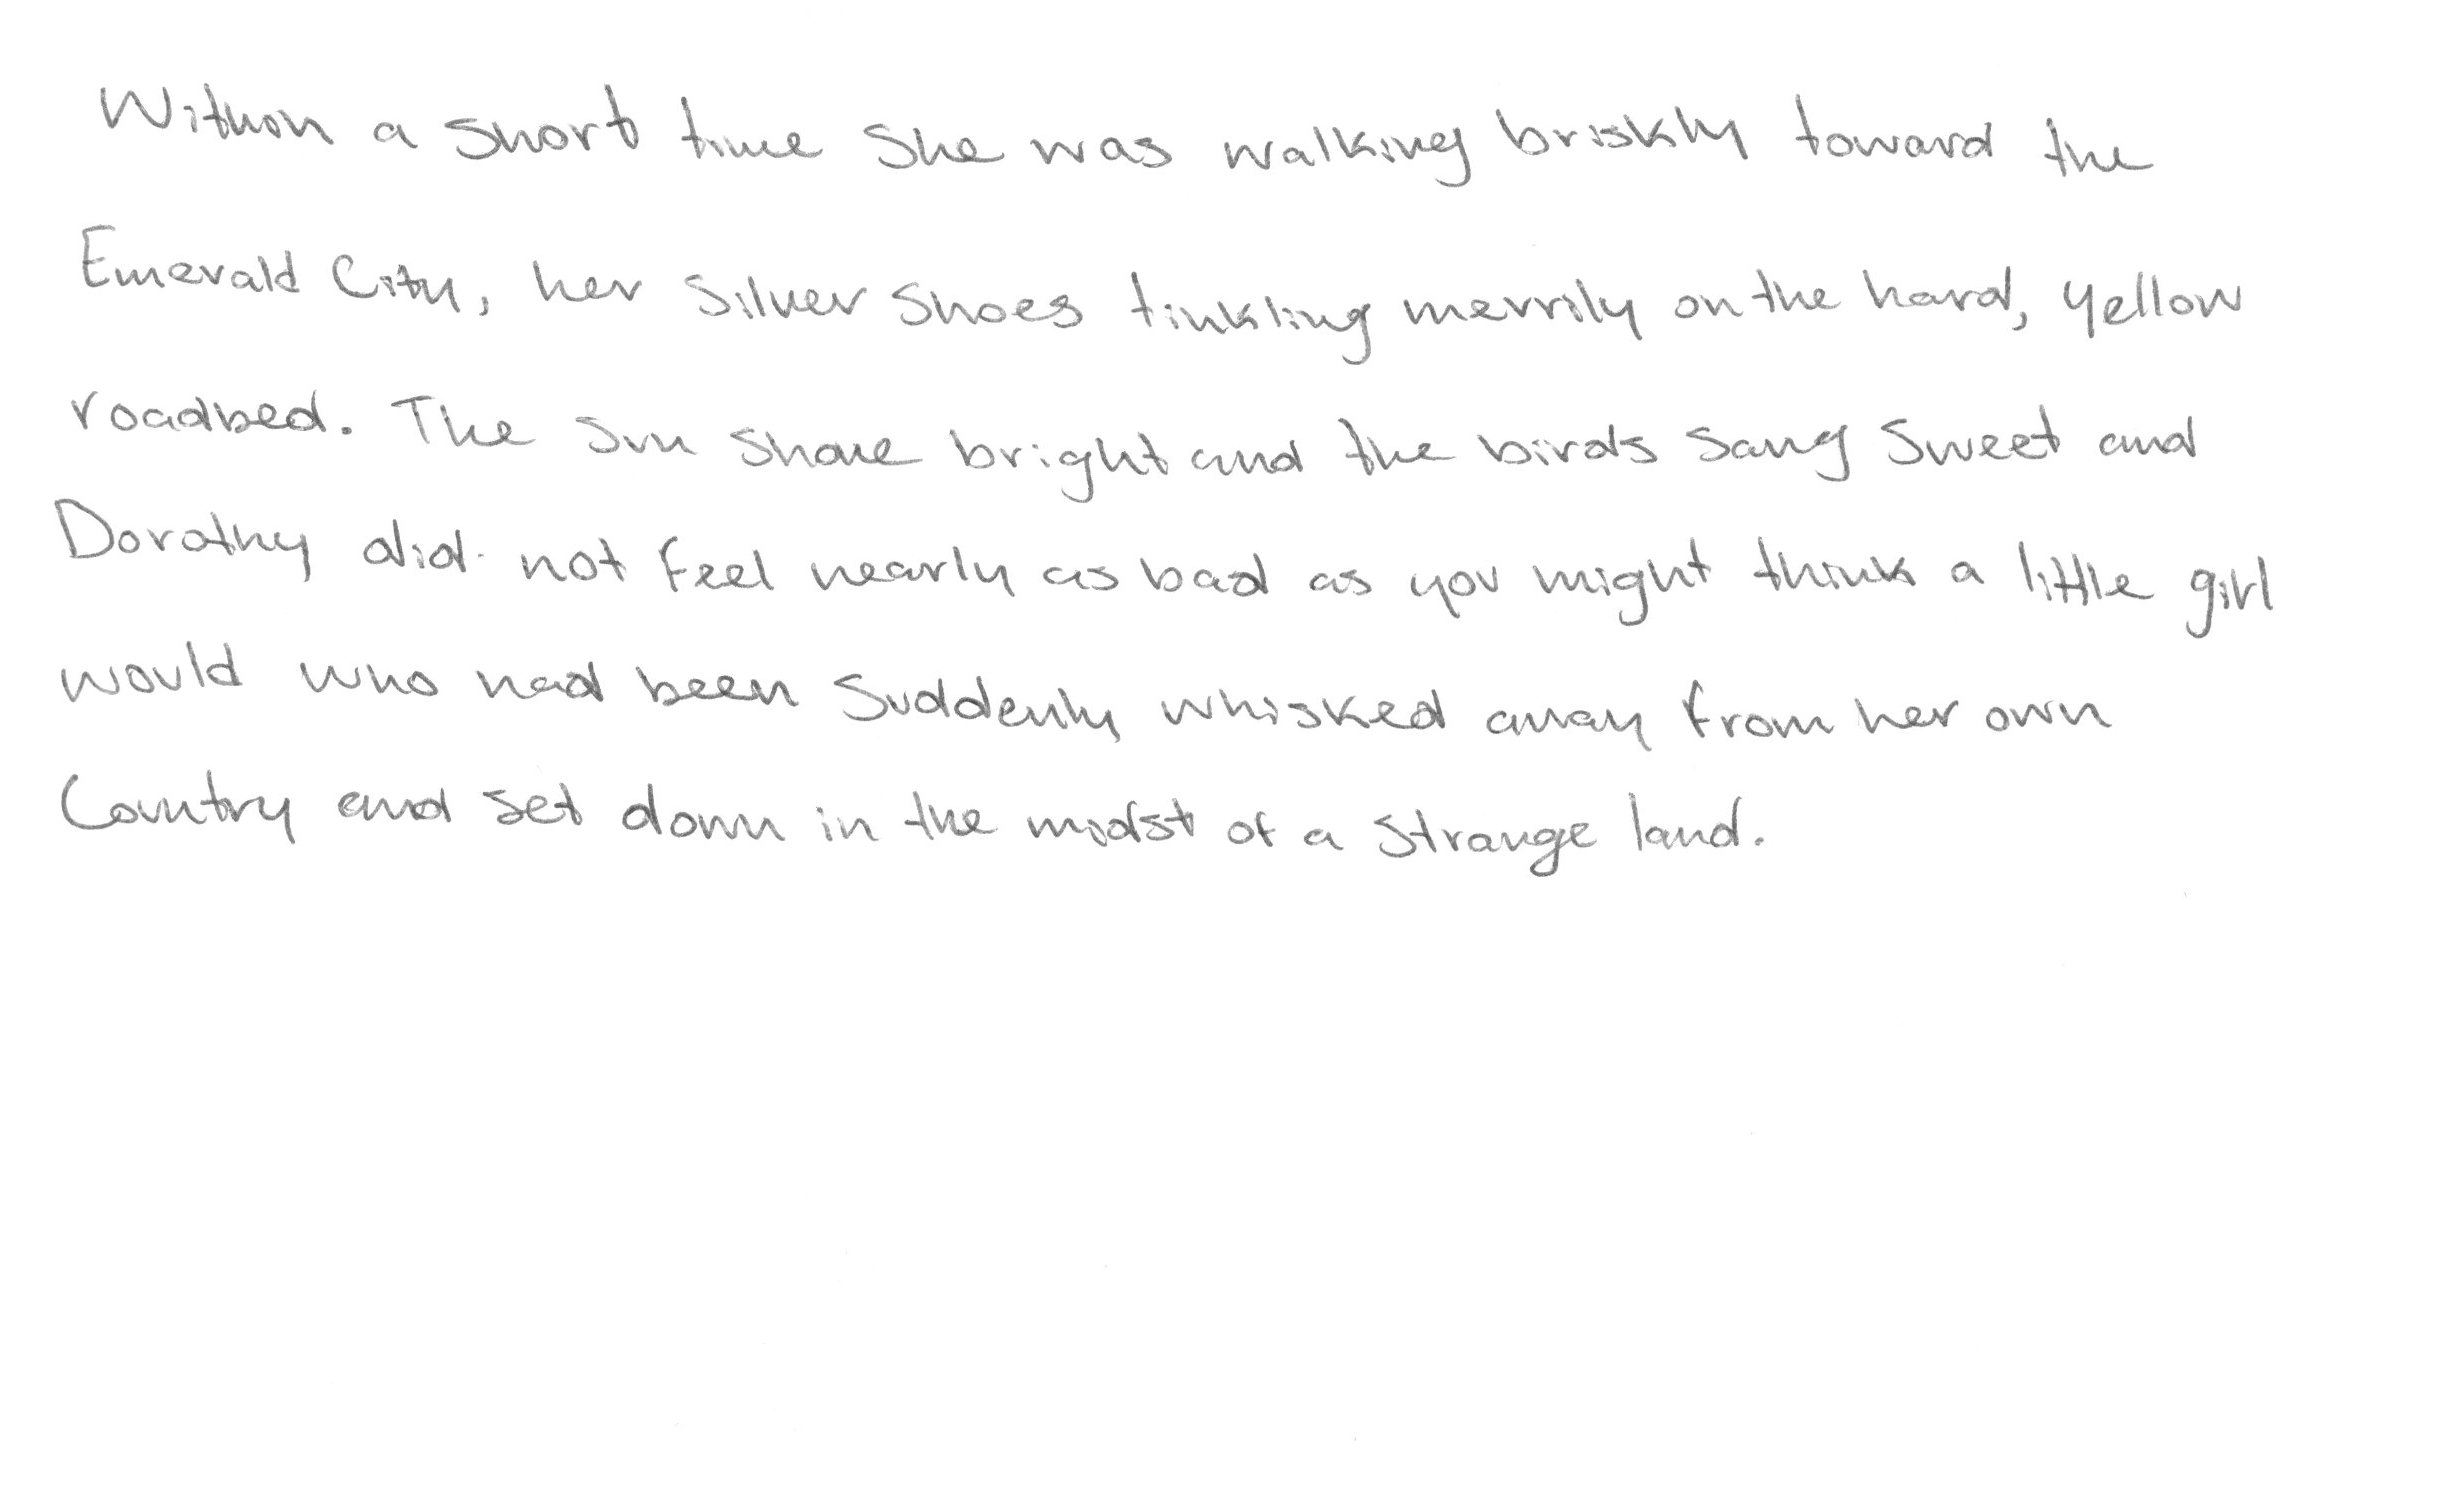 Within a short time she was walking briskly toward the
Emerald City, her silver shoes tinkling merrily on the hard, yellow
roadbed. The sun shone bright and the birds sang sweet and
Dorothy did not feel nearly as bad as you might think a little girl
would who had been suddenly whisked away from her own
Country and set down in the midst of a strange land.